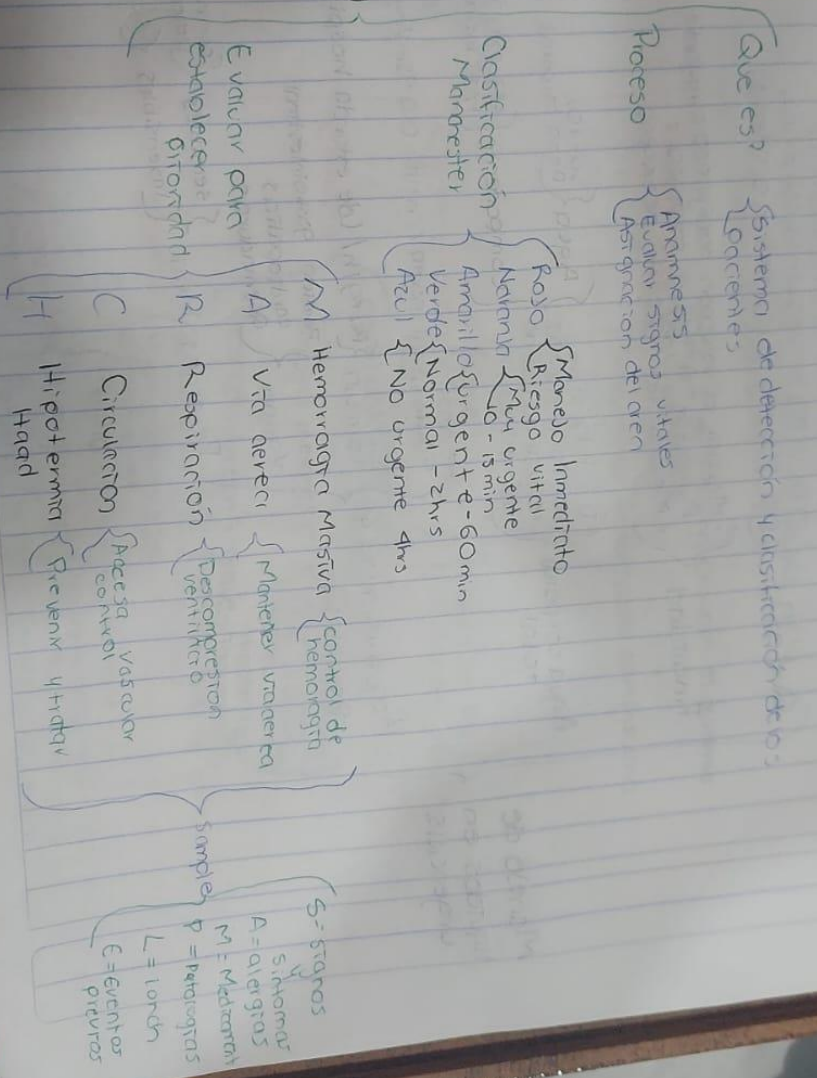 Que es?
Sistema de detección y clasificación de los
pacientes
Proceso
Anamnesis
Evaluar signos vitales
Asignacion del area
Clasificación
Manchester
Rojo
Manejo Inmediato
Riesgo vital
Naranja
Muy urgente
10-15 min
Amarillo
urgente-60 min
Verde
Normal - 2hrs
Azul
No urgente 4hrs
Evaluar para
establecer
prioridad
M Hemorragia Masiva
control de
hemoragia
A Via aerea
Mantener via aerea
R Respiración
Descompresion
C Circulacion
vascular
control
H Hipotermia
Head
Prevenir y tratar
Sample
S= signos
y
sintomas
A= alergias
M= Medicament
P = Patologias
L = lonch
E= Eventos
previos